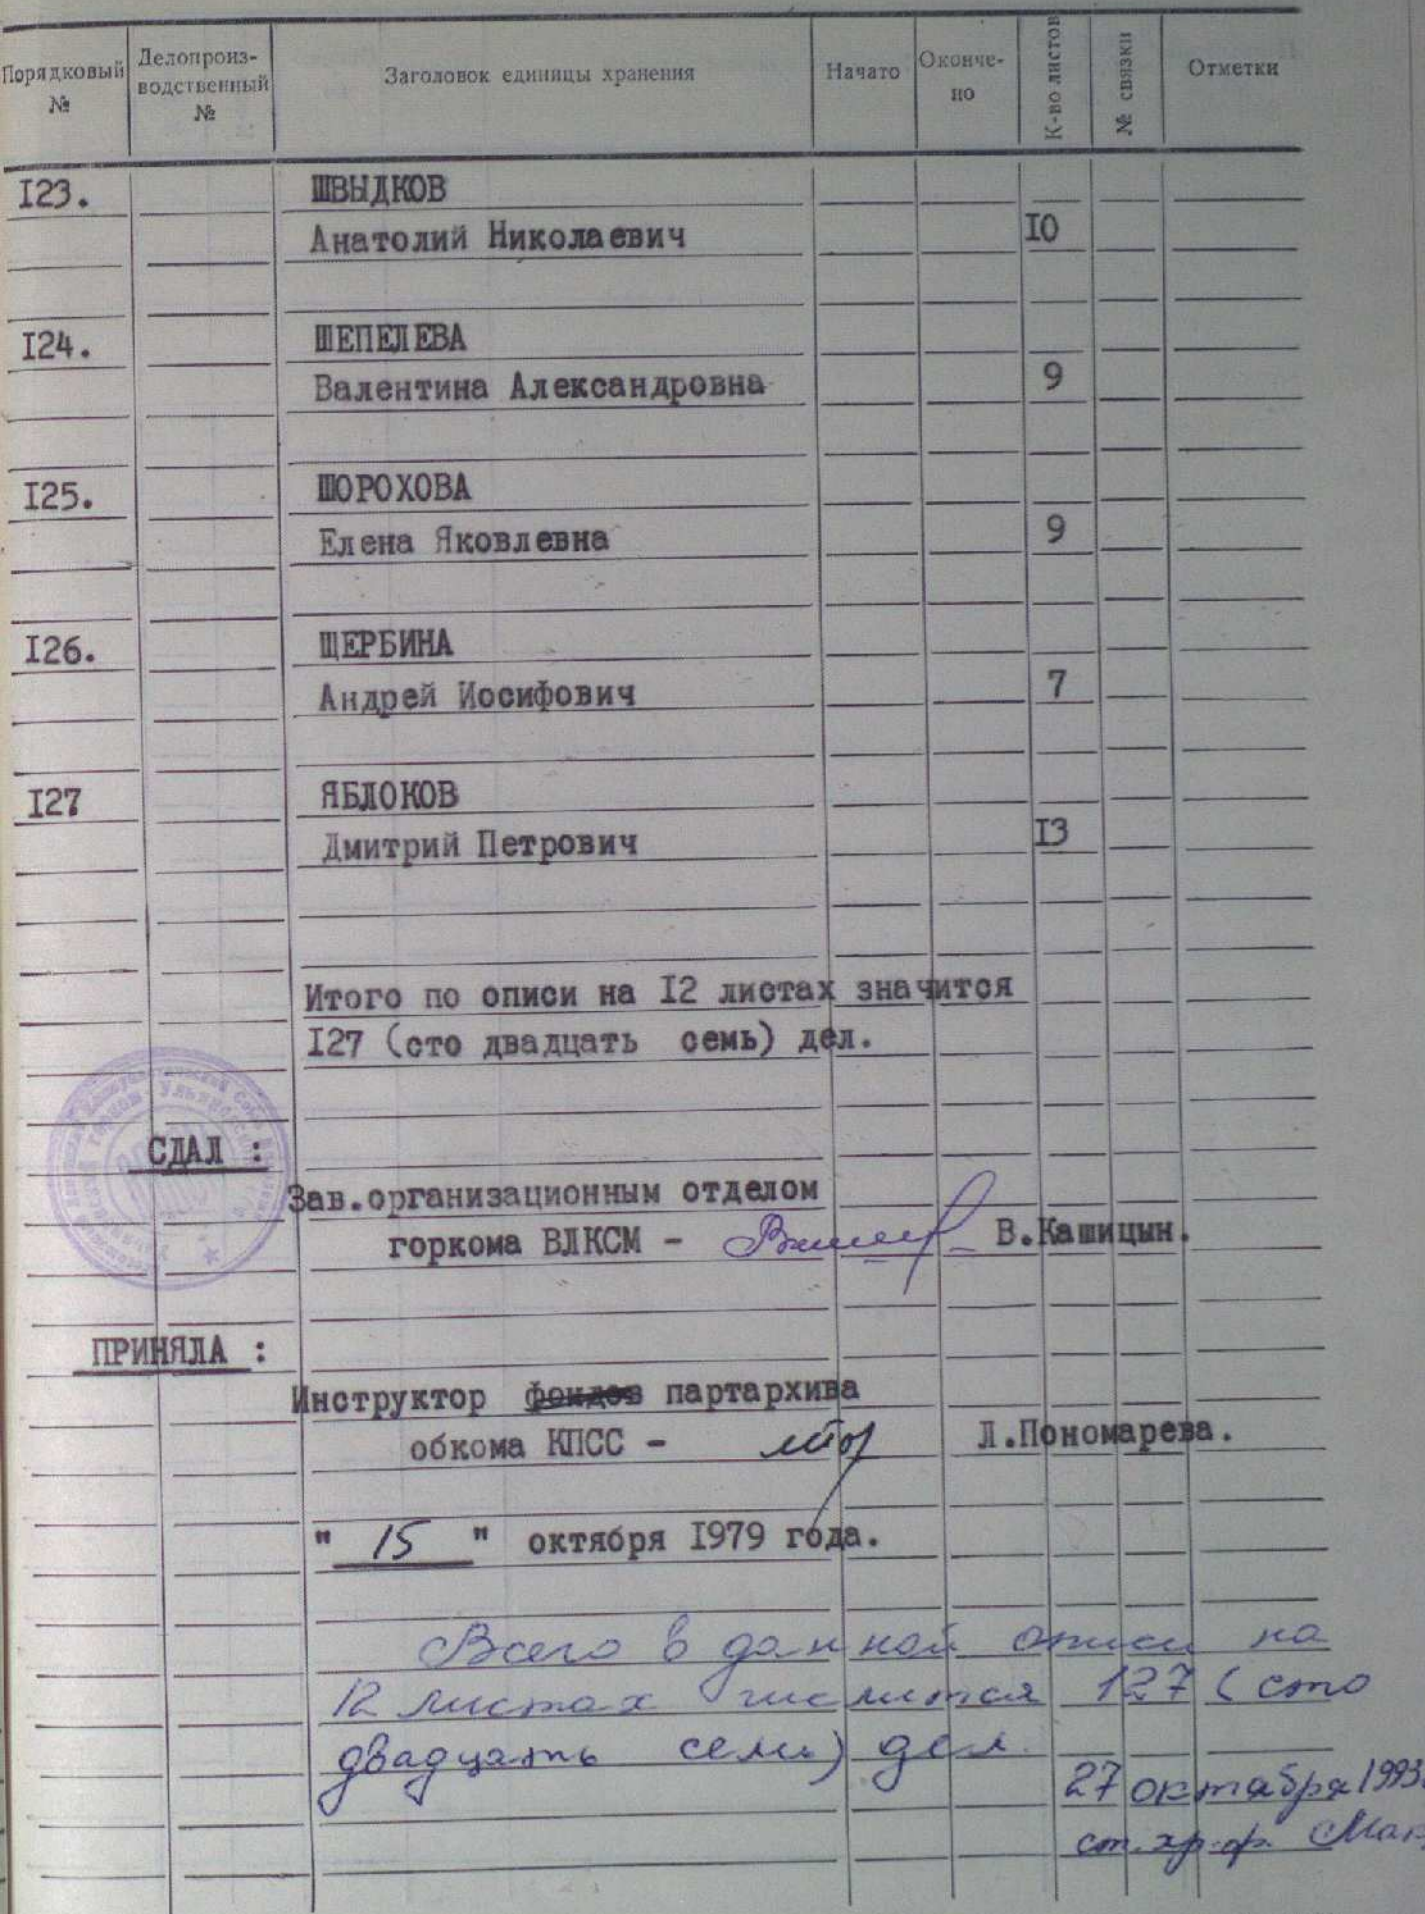 Порядковый № Делопроиз-водственный № Заголовок единицы хранения Начато Окончено К-во листов № связки Отметки
I23. ШВЫДКОВ
Анатолий Николаевич I0
I24. ШЕПЕЛЕВА
Валентина Александровна 9
I25. ШОРОХОВА
Елена Яковлевна 9
I26. ЩЕРБИНА
Андрей Иосифович 7
I27 ЯБЛОКОВ
Дмитрий Петрович I3
Итого по описи на I2 листах значится
I27 (сто двадцать семь) дел.
СДАЛ :
Зав.организационным отделом
горкома ВЛКСМ - В.Кашицын.
ПРИНЯЛА :
Инструктор фондов партархива
обкома КПСС - Л.Пономарева.
" 15 " октября I979 года.
Всего в данной описи на
12 листах числится 127 (сто
двадцать семь) дел.
27 октября 1993
ст. хр. ф.